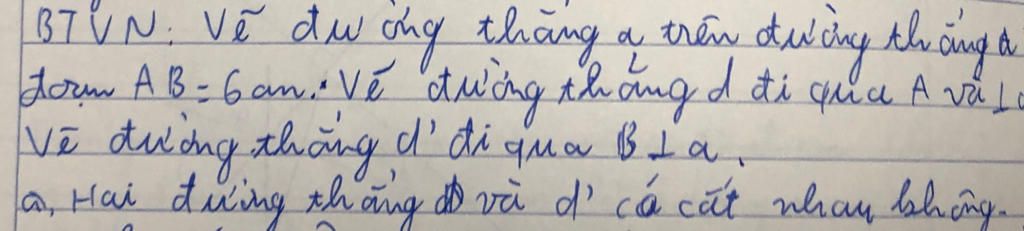 BTVN: Vẽ đường thẳng a trên đường thẳng a
đoạn AB = 6 cm. Vẽ đường thẳng d đi qua A và ⊥
Vẽ đường thẳng d' đi qua B ⊥ a.
a, Hai đường thẳng d và d' có cắt nhau không.